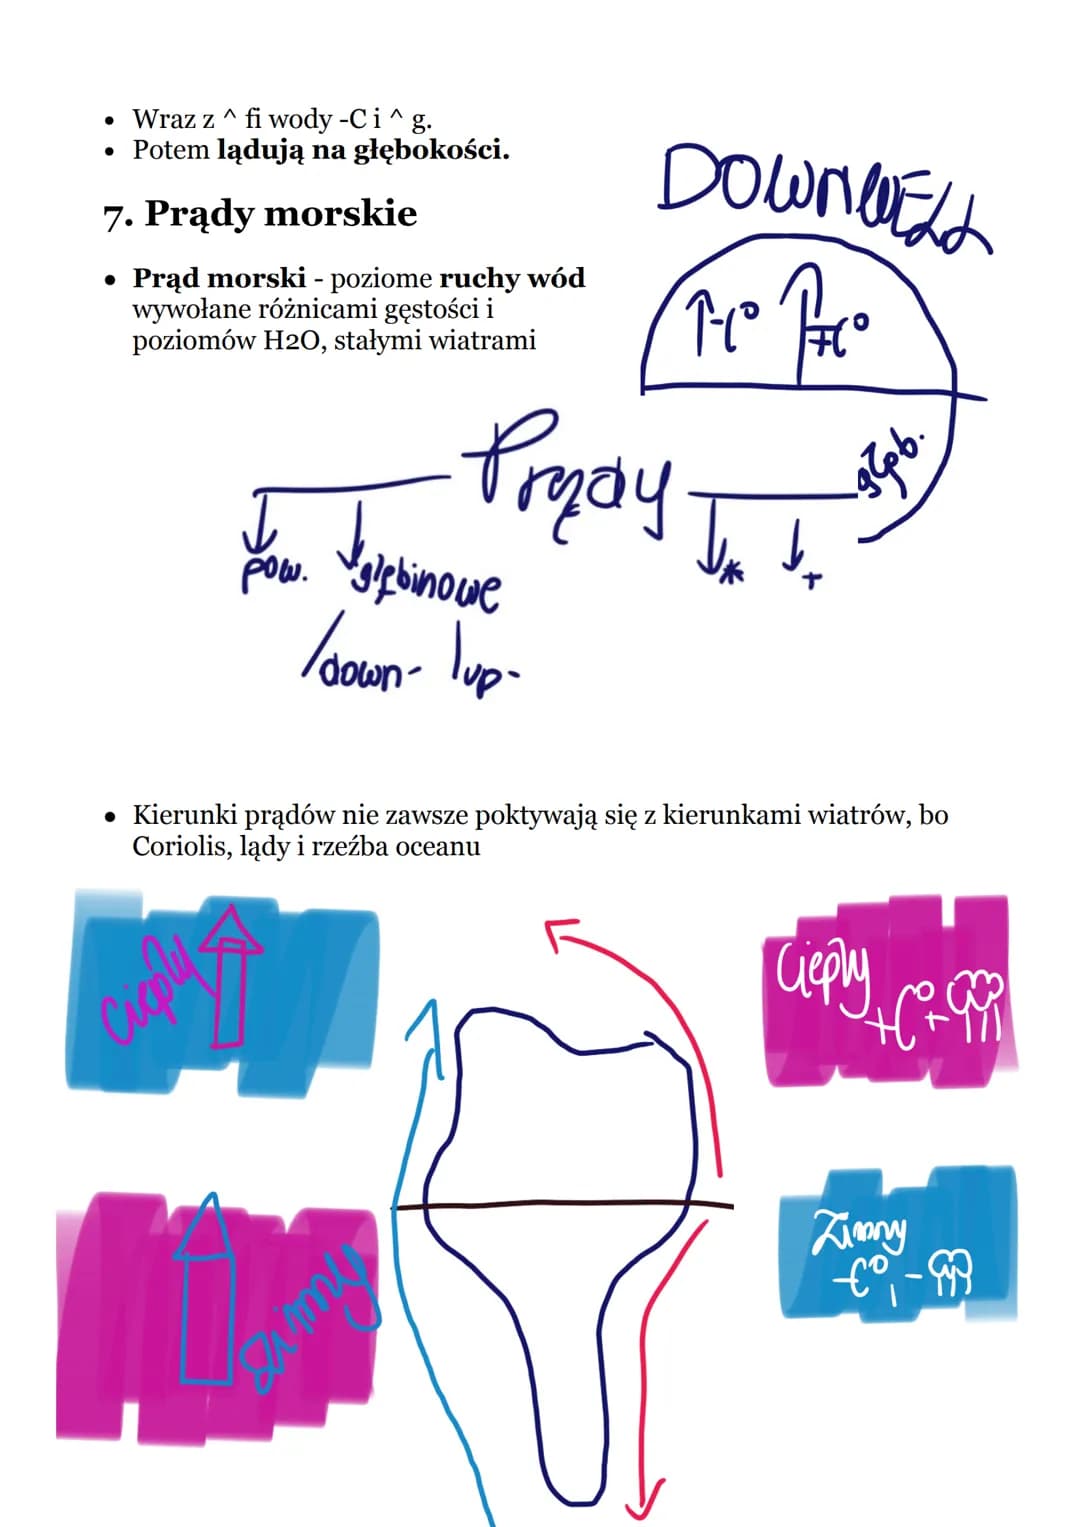 • Wraz z ^ fi wody -C i ^ g.
• Potem lądują na głębokości.
DOWNWELL
7. Prądy morskie
• Prąd morski - poziome ruchy wód
wywołane różnicami gęstości i
poziomów H2O, stałymi wiatrami
-C° +C°
głęb.
Prądy
pow. głębinowe
* +
/down- \up-
• Kierunki prądów nie zawsze poktywają się z kierunkami wiatrów, bo
Coriolis, lądy i rzeźba oceanu
Ciepły
Ciepły
+C° +
Zimny
-C°, -
zimny